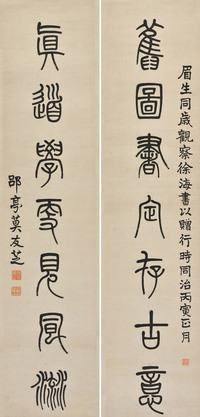 眉生同歲觀察徐海書以贈行時同治丙寅正月
舊圖書定存古意
真道學
見風流
邵亭莫友芝